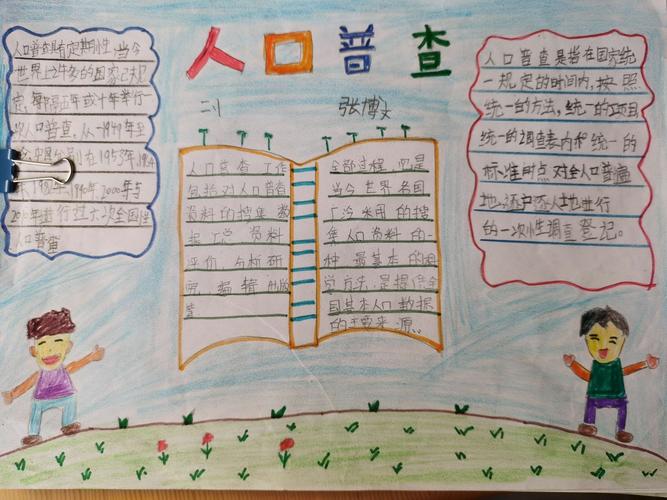 人口普查
二1 张博文
人口普查具有定期性,当今
世界上许多的国家已规
定,每隔五年或十年举行一
次人口普查,从1949年至
今中国分别在1953年,1964
1982年,1990年,2000年与
2010年进行过六次全国性
人口普查
人口普查工作
包括对人口普查
资料的搜集,数
据汇总,资料
评价,分析研
究,编辑出版
等
全部过程,它是
当今世界各国
广泛采用的搜
集人口资料的一
种最基本的科
学方法,是提供全
国基本人口数据
的主要来源。
人口普查是指在国家统
一规定的时间内,按照
统一的方法,统一的项目
统一的调查表内和统一的
标准时点对全人口普遍
地,逐户逐人地进行
的一次性调查登记。